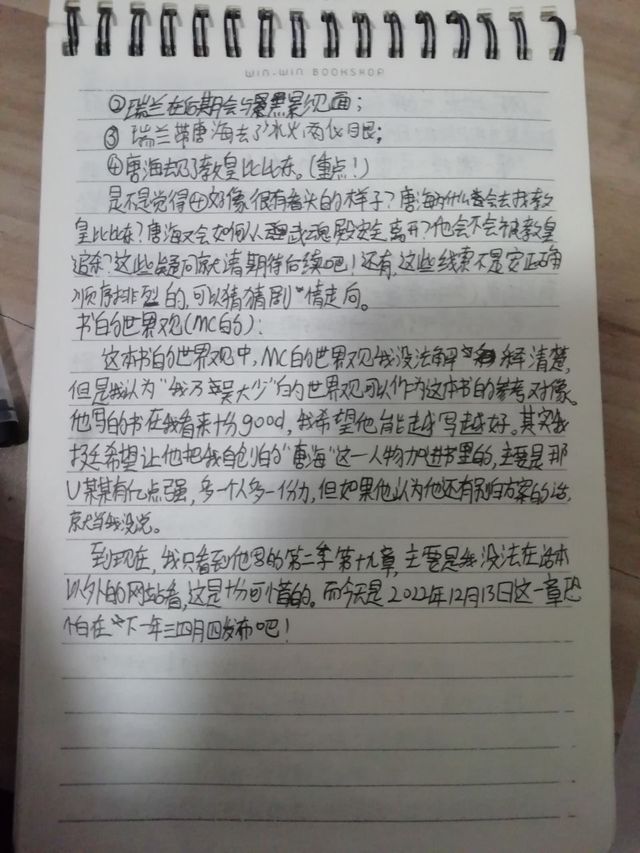 WIN-WIN BOOKSHOP
②瑞兰在后期会与墨景见面；
③瑞兰带唐海去了冰火两仪眼；
④唐海去见了教皇比比东。(重点！)
是不是觉得④好像很有看头的样子？唐海为什么会去找教
皇比比东？唐海又会如何从武魂殿安全离开？他会不会被教皇
追杀？这些疑问就请期待后续吧！还有，这些线索不是安正确
顺序排列的，可以猜猜剧情走向。
书的世界观(MC的)：
这本书的世界观中，MC的世界观我没法解释清楚，
但是我认为“我乃吴大少”的世界观可以作为这本书的参考对像。
他写的书在我看来十分good，我希望他能越写越好。其实我
挺希望让他把我自创的“唐海”这一人物加进书里的，主要是那
U某某有亿点强，多一个人多一份力，但如果他认为他还有别的方案的话，
就当我没说。
到现在，我只看到他写的第二季第十九章，主要是我没法在话本
以外的网站看，这是十分可惜的。而今天是2022年12月13日这一章恐
怕在下一年三四月四发布吧！